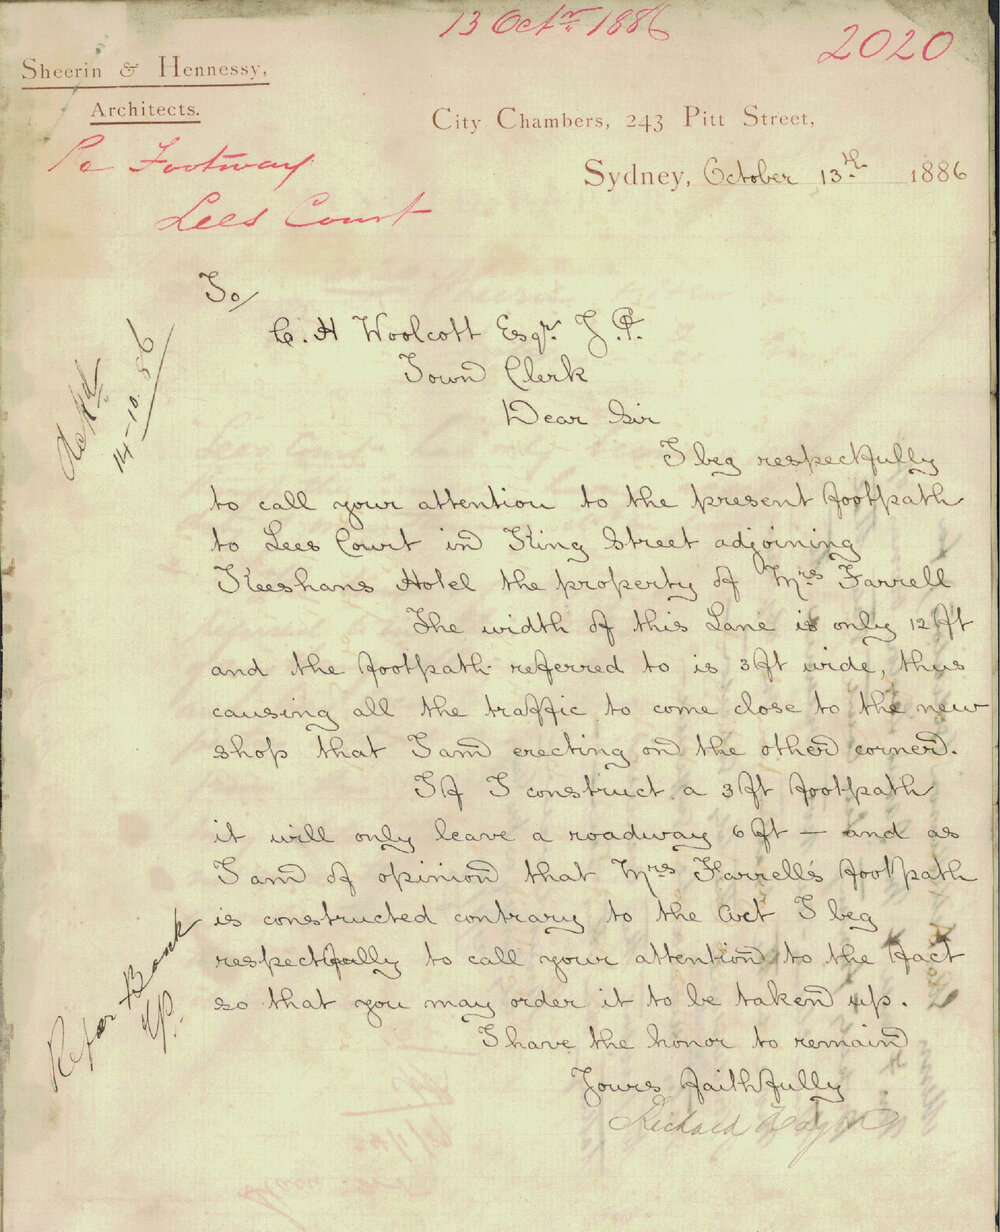 13 Octr 1886
2020
Sheerin & Hennessy,
Architects.
City Chambers, 243 Pitt Street,
Sydney, October 13th 1886
Re Footway
Lees Court
To/
C. H Woolcott Esqr. J.P.
Town Clerk
Dear Sir
Ackd
14-10.86
I beg respectfully
to call your attention to the present footpath
to Lees Court in King Street adjoining
Keeshans Hotel the property of Mrs Farrell
The width of this Lane is only 12 ft
and the footpath referred to is 3 ft wide, thus
causing all the traffic to come close to the new
shop that I am erecting on the other corner.
If I construct a 3 ft footpath
it will only leave a roadway 6 ft — and as
I am of opinion that Mrs Farrell's footpath
is constructed contrary to the Act I beg
respectfully to call your attention to the fact
so that you may order it to be taken up.
Refer Book
I have the honor to remain
Yours faithfully
Richard